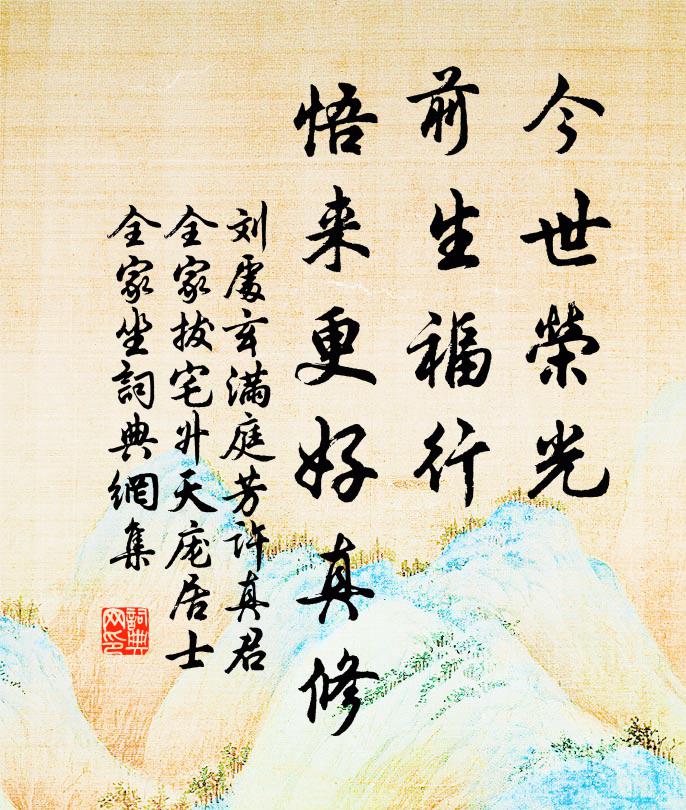 今世榮光
前生福行
悟来更好真修
刘處玄满庭芳许真君
全家拔宅升天庞居士
全家坐詞典網集
詞典
网印